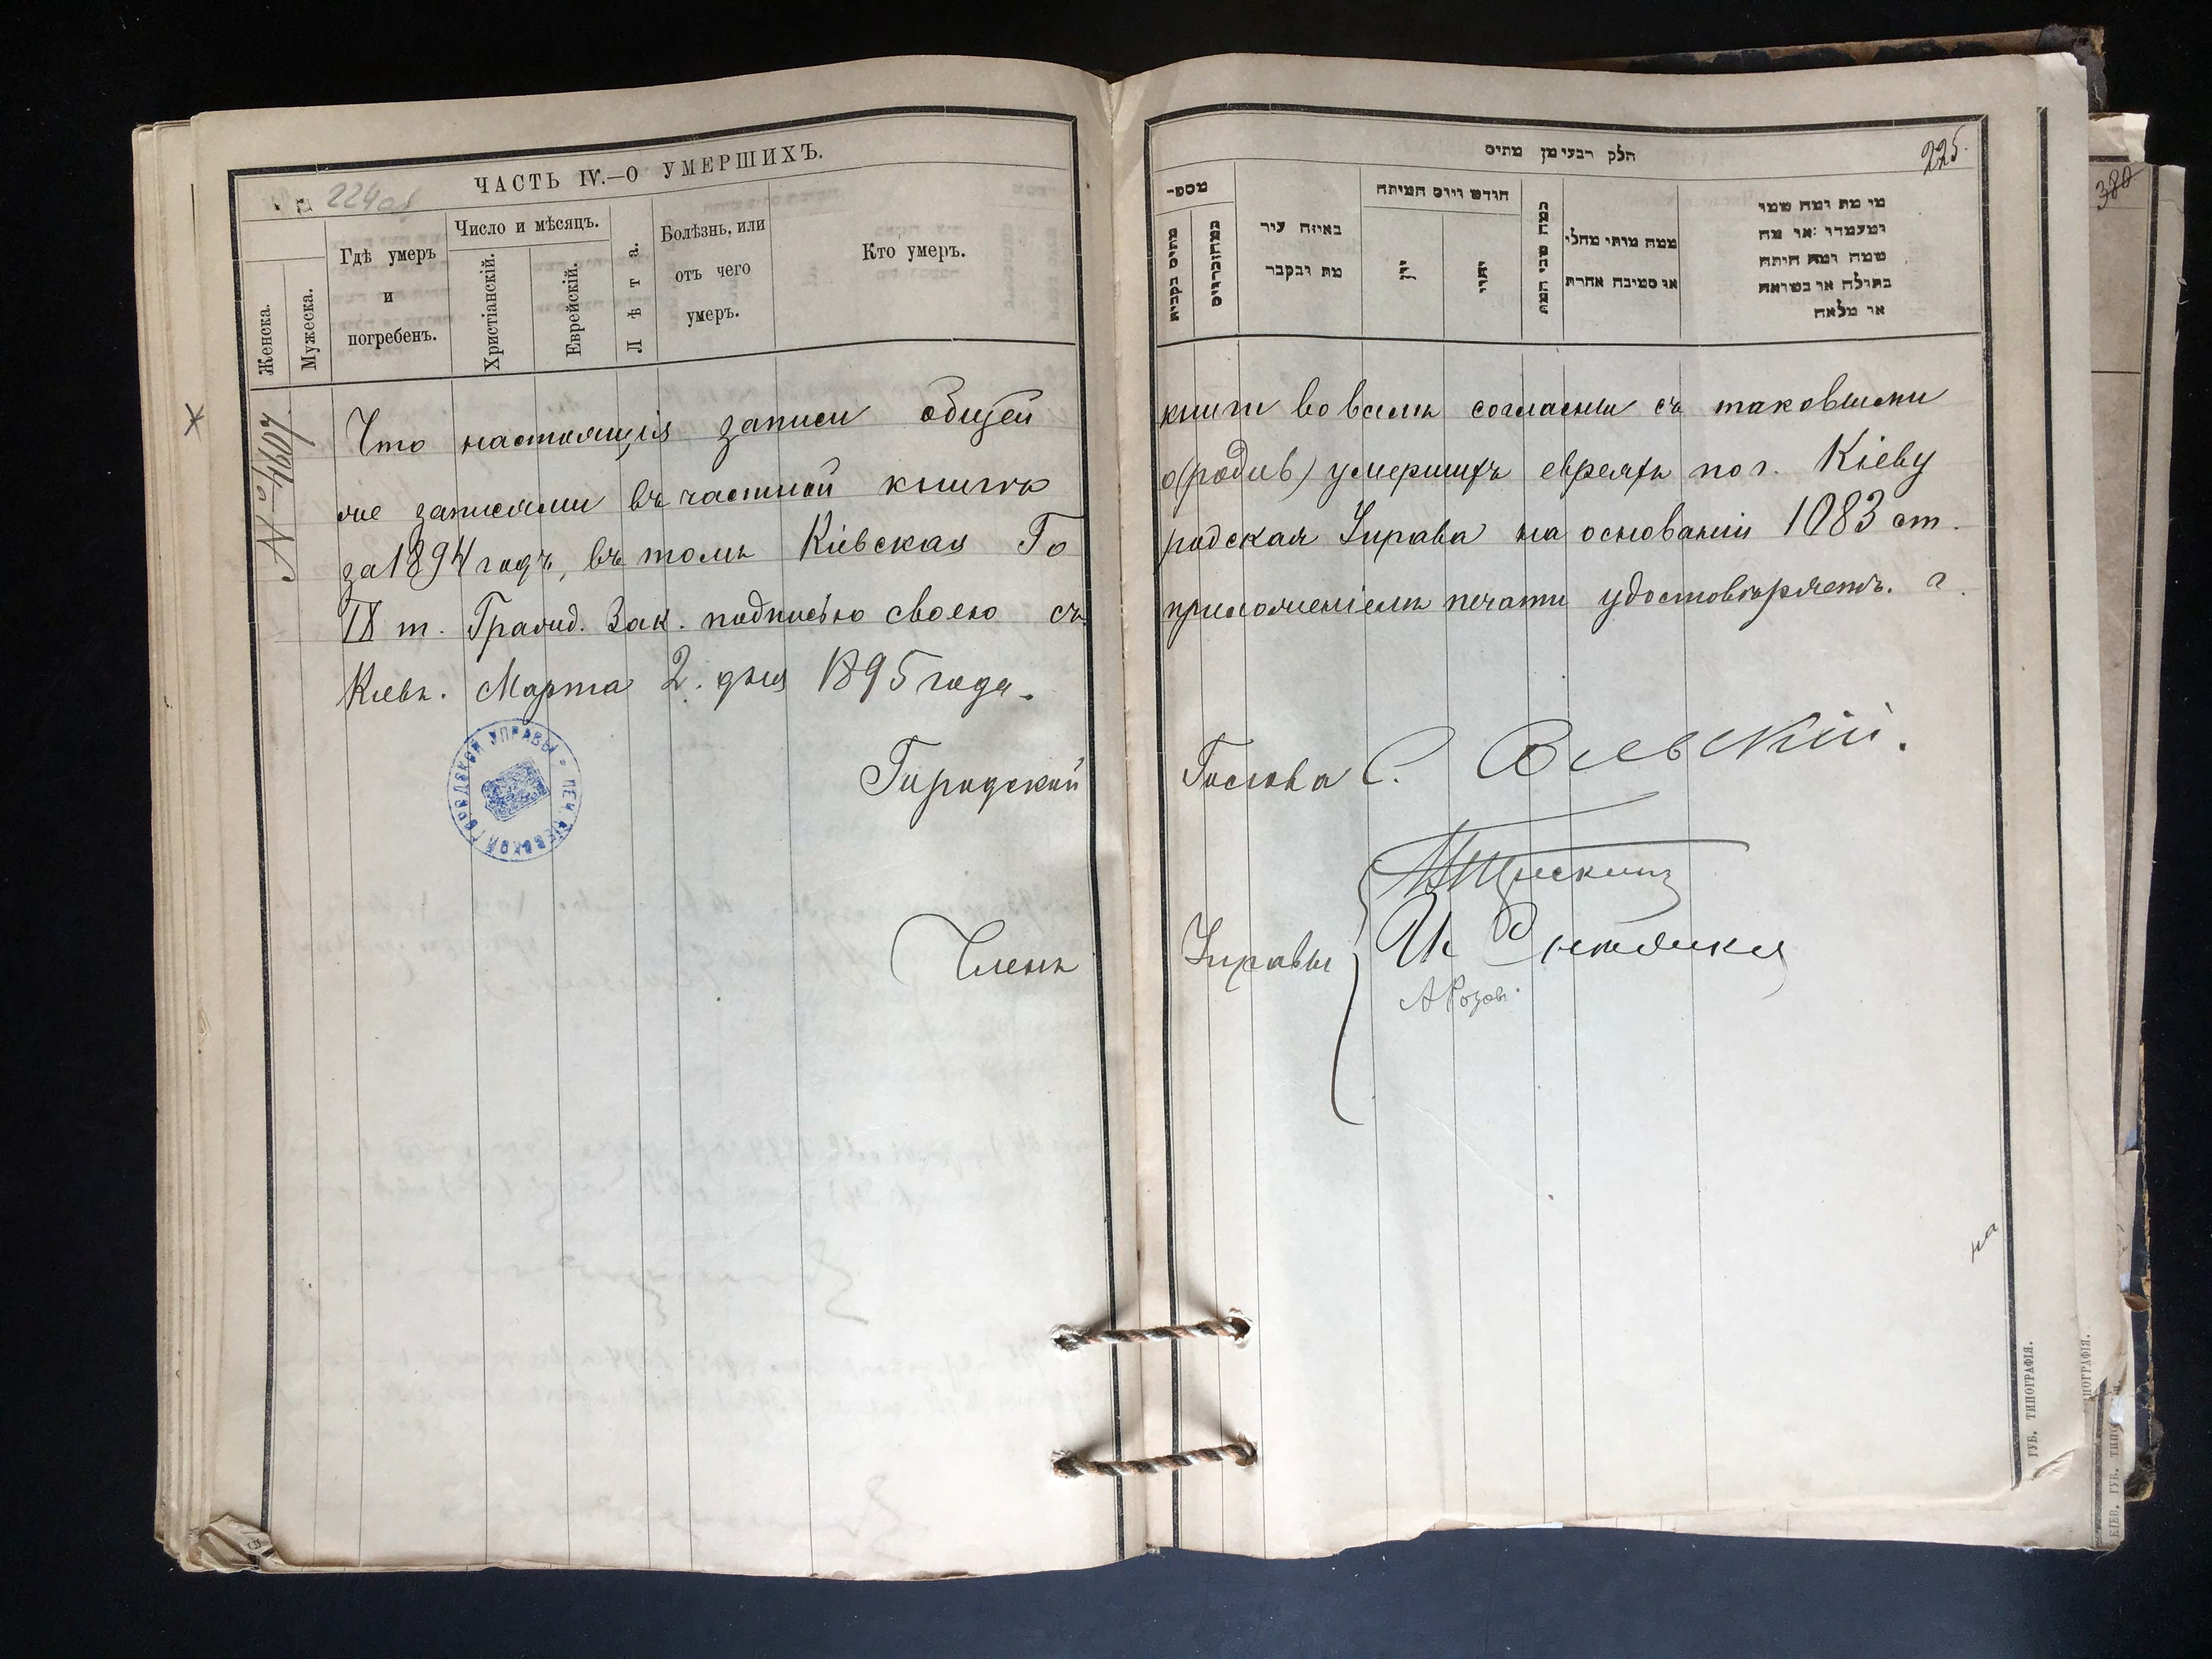 224об
ЧАСТЬ IV.—О УМЕРШИХЪ.
Женска.
Мужеска.
Гдѣ умеръ
и
погребенъ.
Число и мѣсяцъ.
Христіанскій.
Еврейскій.
Лѣта.
Болѣзнь, или
отъ чего
умеръ.
Кто умеръ.
№ 4607
Что настоящія записи общей
же записями въ частной книгѣ
за 1894 годъ, въ томъ Кіевская Го
IX т. Гражд. Зак. подписью своею съ
Кіевъ. Марта 2 дня 1895 года.
Городской
Членъ
ГОРОДСКОЙ УПРАВЫ
225.
חלק רביעי מן מתים
מספ-
מתים נקבות
באיזה עיר
מת ונקבר
חודש ויום המיתה
יוני
יהודי
כמה שני המת
ממה מותו מחלי
או מסיבה אחרת
מי מת ומה שמו
ומעמדו או מה
שמה ומה היתה
בתולה או נשואה
או מלאה
книги во всемъ согласны съ таковыми
о (родив) умершихъ евреяхъ по г. Кіеву
родская Управа на основаніи 1083 ст.
приложеніемъ печати удостовѣряетъ. г.
Голова С. Сольскій.
Управы
А Розовъ
на
380
ГУБ. ТИПОГРАФІЯ.
КІЕВ. ГУБ. ТИП
ТИПОГРАФІЯ.